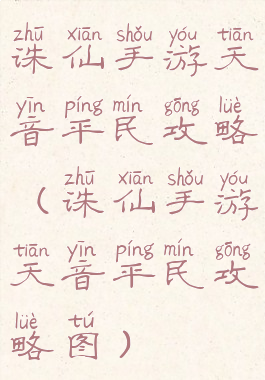 zhū xiān shǒu yóu tiān
诛仙手游天
yīn píng mín gōng lüè
音平民攻略
zhū xiān shǒu yóu
(诛仙手游
tiān yīn píng mín gōng
天音平民攻
lüè tú
略图)